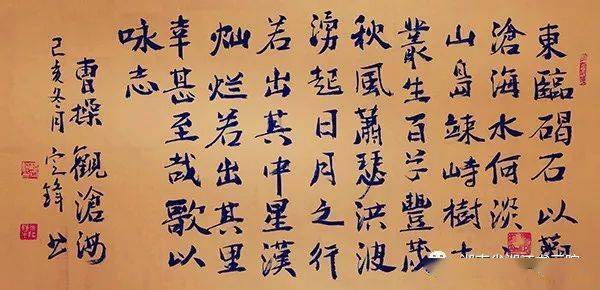 東臨碣石以觀
滄海水何淡
山島竦峙樹木
叢生百草豐茂
秋風蕭瑟洪波
湧起日月之行
若出其中星漢
灿烂若出其里
幸甚至哉歌以
咏志
曹操 觀滄海
己亥冬月 鋒书